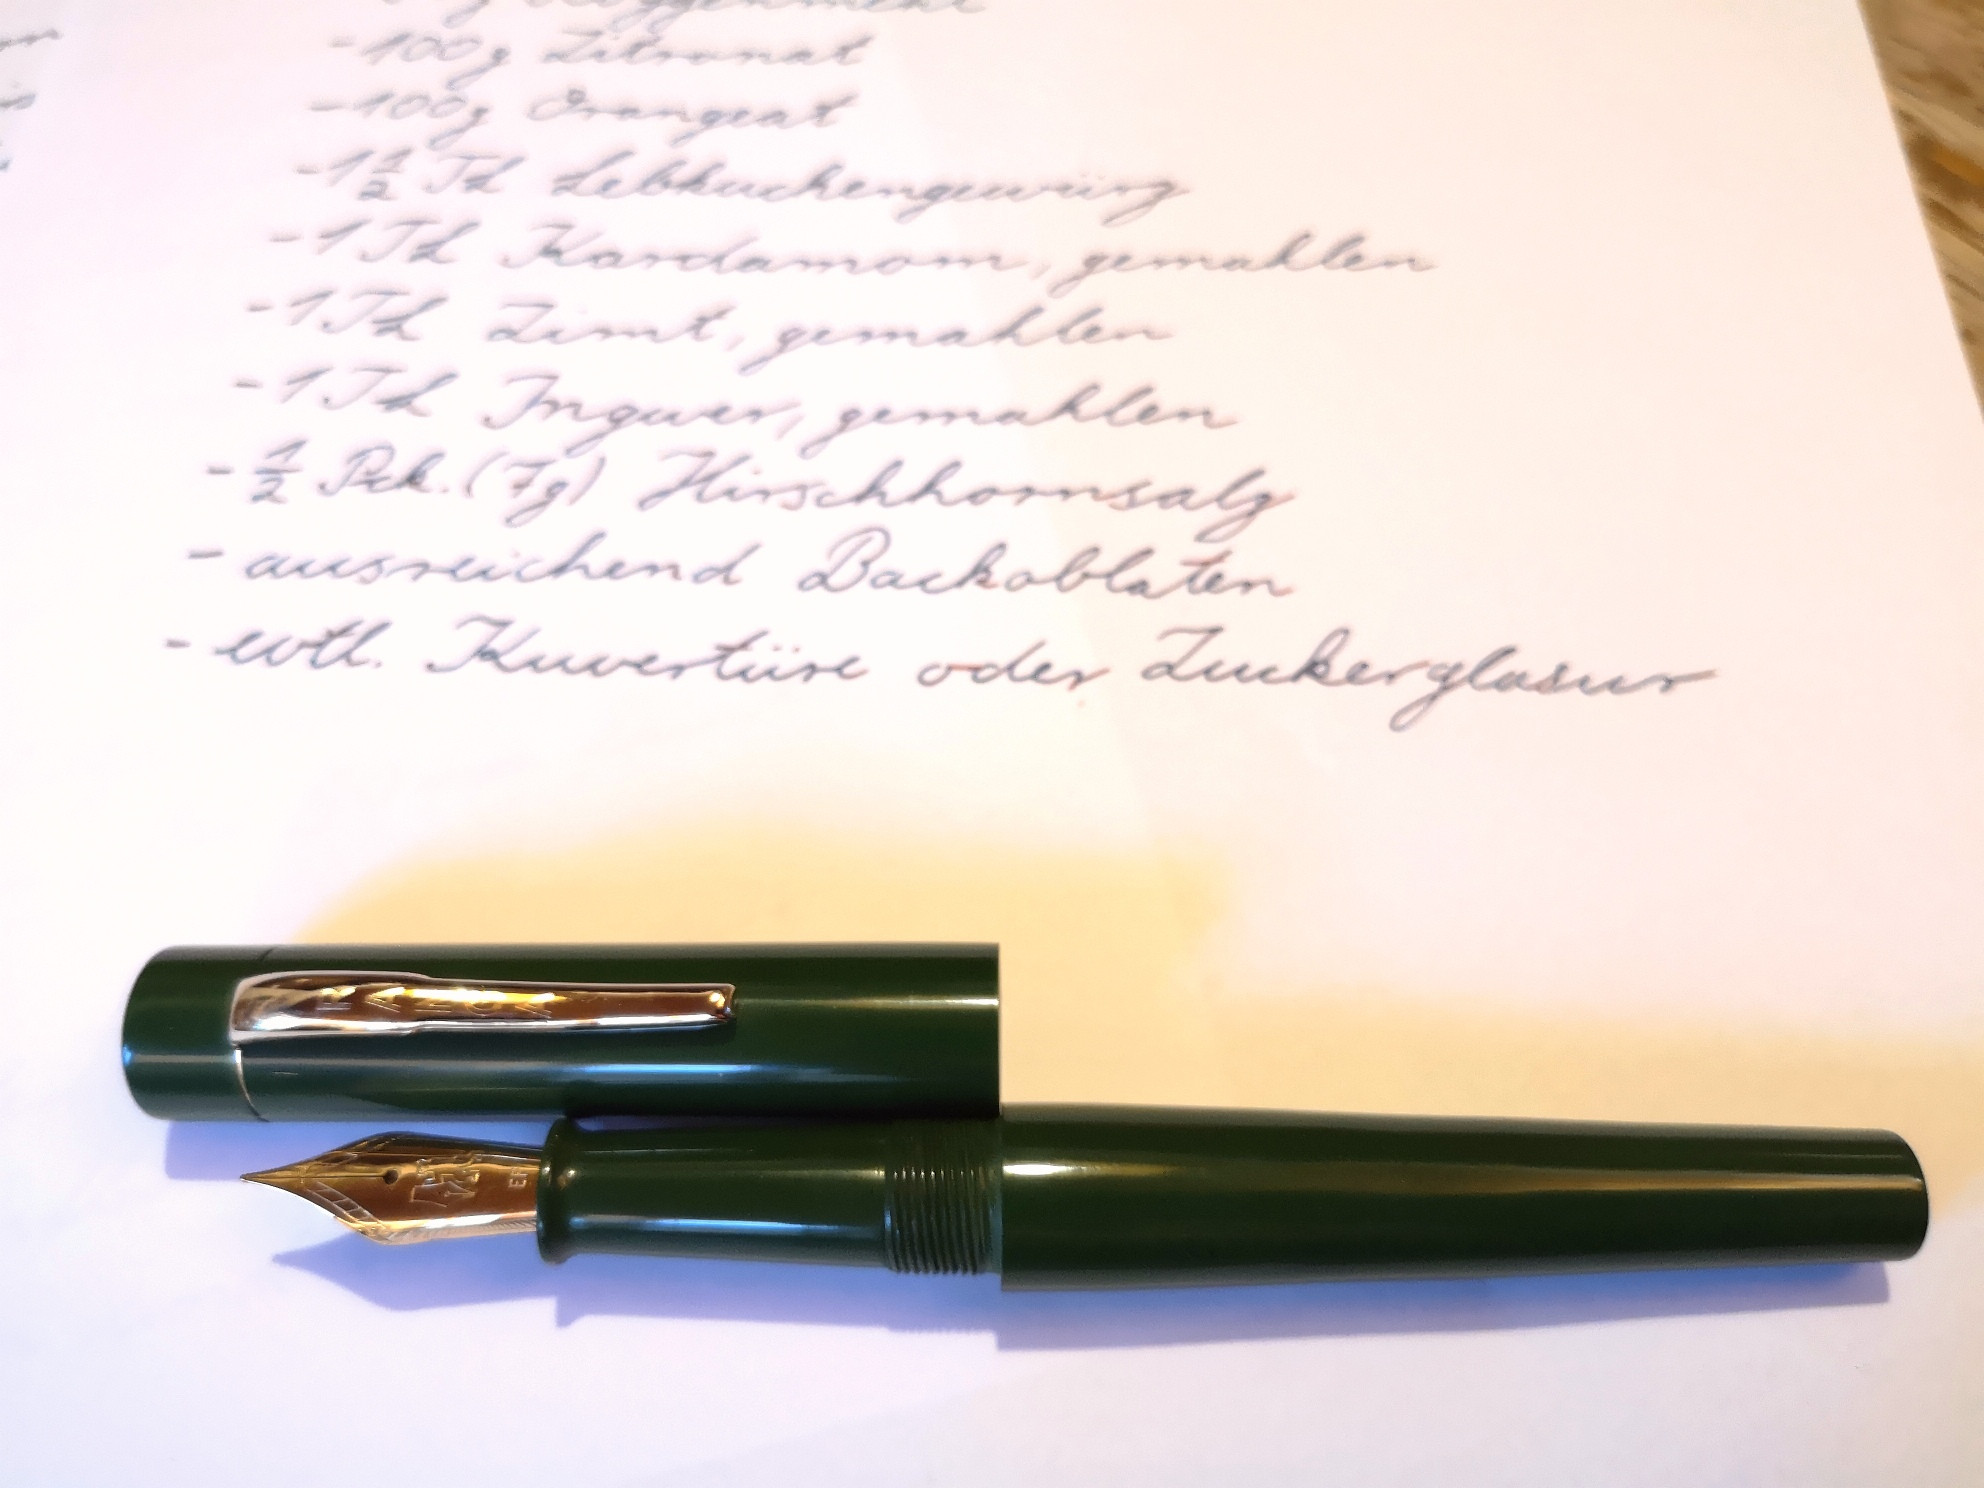 Roggenmehl
- 100g Zitronat
- 100g Orangeat
- 1 1/2 TL Lebkuchengewürz
- 1 TL Kardamom, gemahlen
- 1 TL Zimt, gemahlen
- 1 TL Ingwer, gemahlen
- 1/2 Pck. (7g) Hirschhornsalz
- ausreichend Backoblaten
- evtl. Kuvertüre oder Zuckerglasur
EF